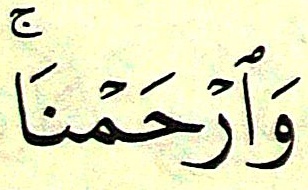 وَٱرۡحَمۡنَاۚ